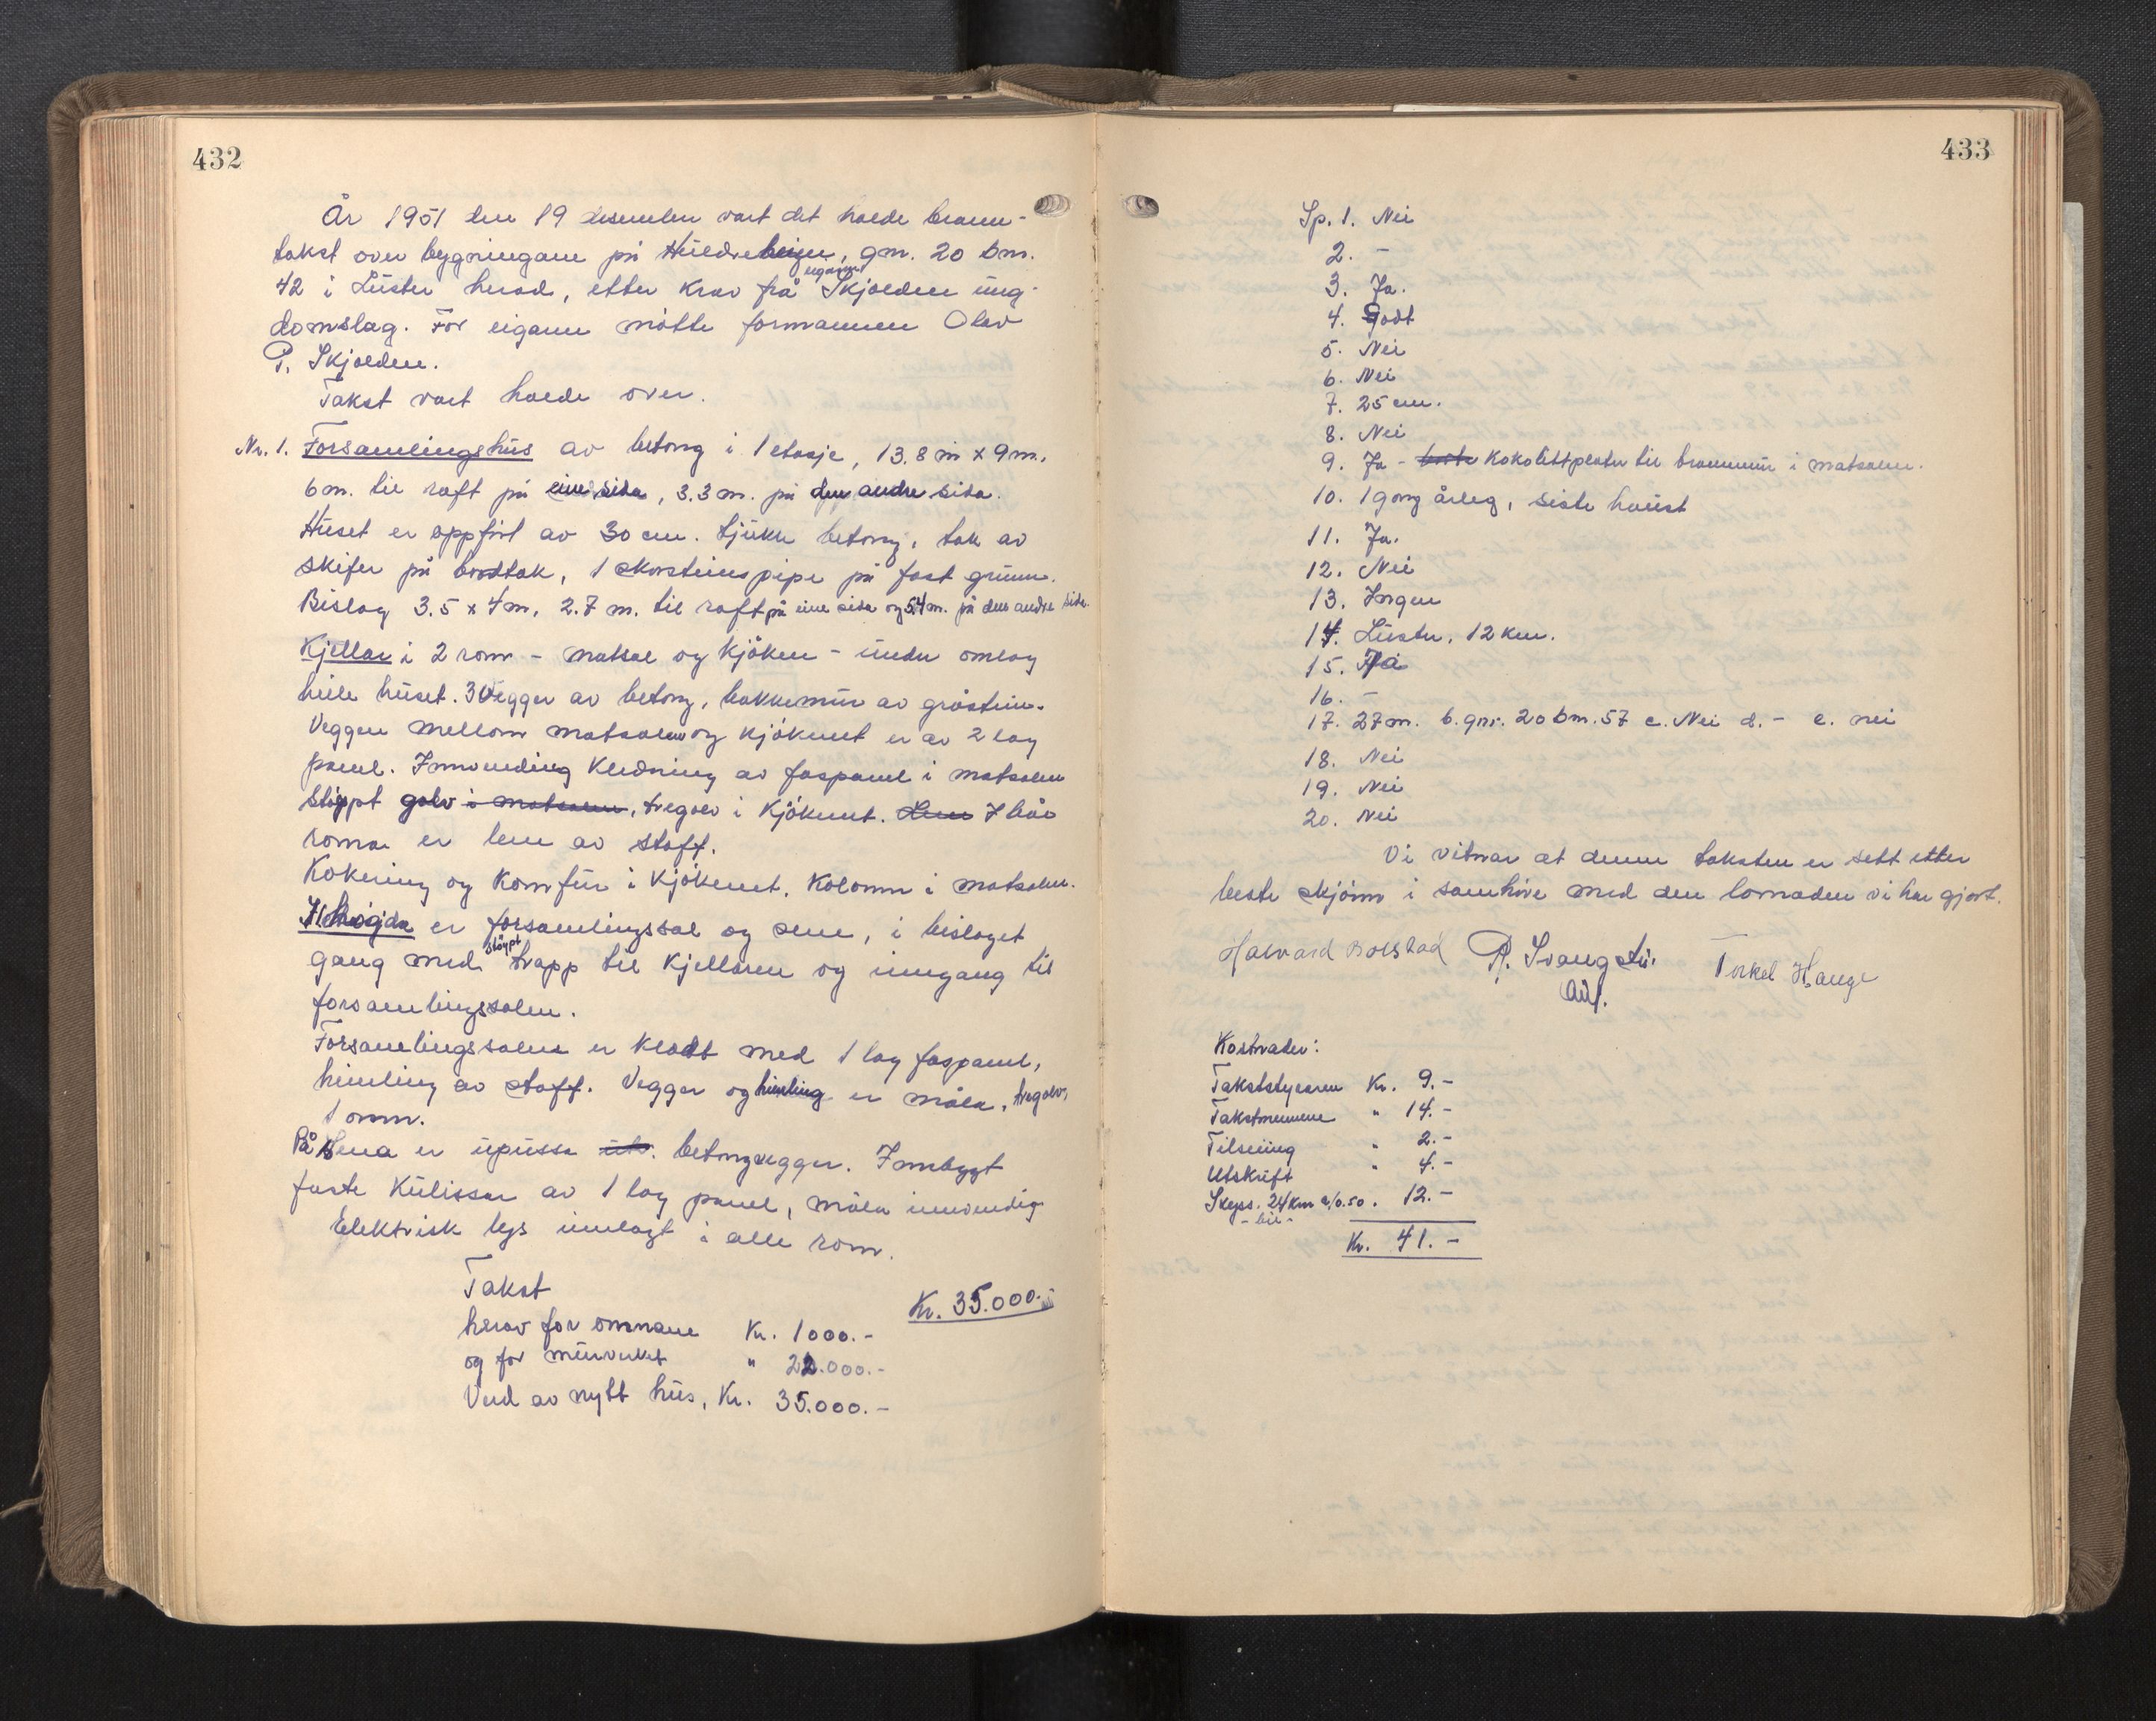 432
År 1951 den 19 desember vart det halde brann-
takst over bygningane på Huldreheigen, gnr. 20 bnr.
42 i Luster herad, etter krav frå eigaren Skjolden ung-
domslag. For eigaren møtte formannen Olav
P. Skjolden.
Takst vart halde over.
Nr. 1. Forsamlingshus av betong i 1 etasje, 13.8 m x 9 m.
6 m. til raft på eine sida, 3.3 m. på den andre sida.
Huset er oppført av 30 cm. tjukk betong, tak av
skifer på bordtak, 1 skorsteinspipe på fast grunn.
Bislag 3.5 x 4 m, 2.7 m. til raft på eine sida og 5.4 m. på den andre sida.
Kjellar i 2 rom - matsal og kjøken - under omlag
heile huset. 3 Vegger av betong, bakkemur av gråstein.
Veggen mellom matsalen og kjøkenet er av 2 lag
panel. Innvendig kledning av faspanel i matsalen
Støypt golv i matsalen, tregolv i kjøkenet. Lem I båe
roma er lem av staff.
Kokering og komfur i kjøkenet. Kolomn i matsalen.
I 1 høgda er forsamlingssal og sene, i bislaget
gang med støypt trapp til kjellaren og inngang til
forsamlingssalen.
Forsamlingssalen er kledt med 1 lag faspanel,
himling av staff. Vegger og himling er måla, tregolv,
1 omn.
På Sena er upussa ut. betongvegger. Innbygt
faste kulissar av 1 lag panel, måla innvendig
Elektrisk lys innlagt i alle rom.
Takst Kr. 35.000.-
herav for omnane Kr. 1000.-
og for murverket " 22.000.-
Verd av nytt hus, Kr. 35.000.-
433
Sp. 1. Nei
2. -
3. Ja.
4. Godt
5. Nei
6. Nei
7. 25 cm.
8. Nei
9. Ja - kokolittplater til brannmur i matsalen.
10. 1 gong årleg, siste haust
11. Ja.
12. Nei
13. Ingen
14. Luster, 12 km.
15. Ja
16. -
17. 27 m. b. gnr. 20 bnr. 57 c. Nei d. - e. nei
18. Nei
19. Nei
20. Nei
Vi vitnar at denne taksten er sett etter
beste skjønn i samhøve med den lovnaden vi har gjort.
Halvard Bolstad P. Svangstu Torkel Hauge
Auf.
Kostnader:
Takststyraren Kr. 9.-
Takstmennene " 14.-
Tilsuing " 2.-
Utskrift " 4.-
Skyss. 24 km a/0.50. 12.-
- bil -
Kr. 41.-